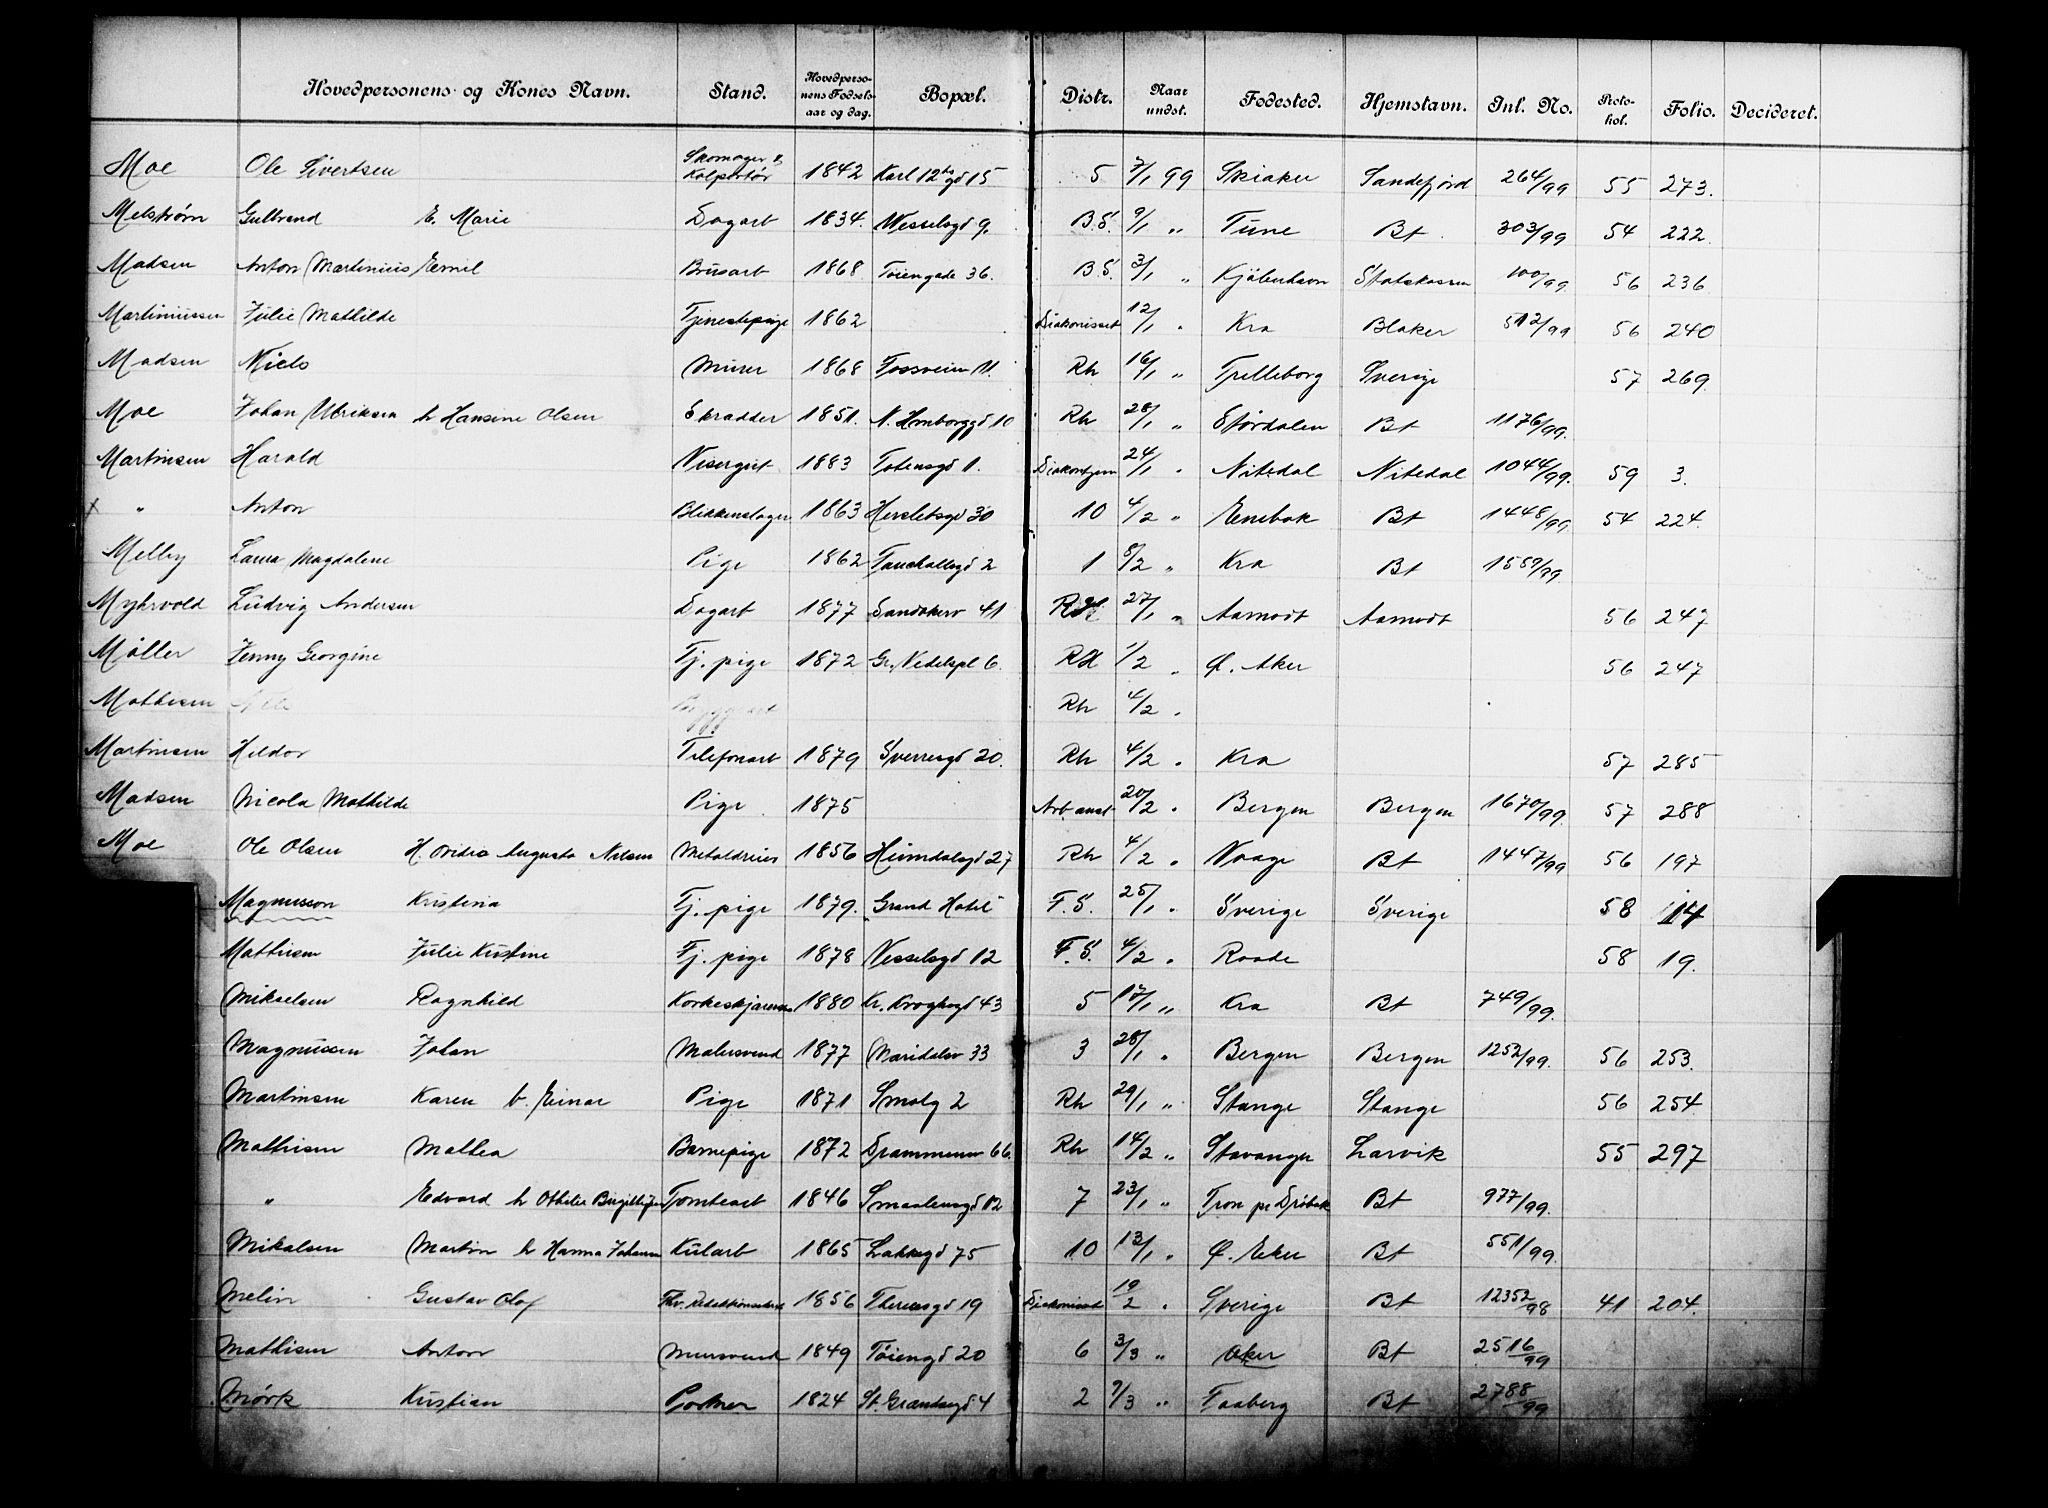 Hovedpersonens og Kones Navn. Stand. Hovedperso-nens Fødsels-aar og dag. Bopæl. Distr. Naar undst. Fødested. Hjemstavn. Inl. No. Proto-kol. Folio. Decideret.
Moe Ole Sivertsen Skomager & Kolportør 1842 Karl 12tes gd 15 5 7/1 99 Skiaker Sandefjord 264/99 55 273.
Melstrøm Gulbrand E. Marie Dagarb 1834. Wesselsgd 9. B.S. 9/1 " Tune Bt 303/99 54 222.
Madsen Anton Martinius Emil Brusarb 1868 Tøiengade 36. B.S. 3/1 " Kjøbenhavn Statskassen 100/99 56 236
Martiniussen Julie Mathilde Tjenestepige 1862 Diakonisset 12/1 " Kra Blaker 512/99 56 240
Madsen Niels Murer 1868 Fossveien 11. Rh 16/1 " Trelleborg Sverige 57 269
Moe Johan Ulriksen h Hansine Olsen Skradder 1851. N. Hmborggd 10 Rh 28/1 " Størdalen Bt 1176/99.
Martinsen Harald Visergut 1883 Totensgd 1. 24/1 " Nitedal Nitedal 1044/99. 59 3.
x " Anton Blikkenslager 1863 Herslebsgd 30 10 4/2 " Enebak Bt 1448/99. 54 224.
Melby Laura Magdalene Pige 1862 2 1 8/2 " Kra Bt 1559/99.
Myhrvold Ludvig Andersen Dagarb 1877 Sandakerv 41 RH 27/1 " Aamodt Aamodt 56 247
Møller Jenny Georgine Tj. pige 1872 Gr. Vedelspl 6. RH 1/2 " Ø. Aker 56 247
Mathisen Rh 4/2 "
Martinsen Hildor Telefonarb 1879 Sverresgd 20. Rh 4/2 " Kra 57 285
Madsen Nicola Mathilde Pige 1875 Arb anst 20/2 " Bergen Bergen 1670/99. 57 288
Moe Ole Olsen H. Augusta Nilsen Metaldreier 1856 Heimdalsgd 27 Rh 4/2 " Vaage Bt 1447/99 56 197
Magnusson Kristina Tj. pige 1879. Grand Hotel F.S. 25/1 " Sverige Sverige 58 14
Mathisen Julie Kristine Tj. pige 1878 Vesselsgd 12 F.S. 4/2 " Raade 58 19.
Mikaelsen Ragnhild Korkeskjærerske 1880 Kr. Kroghsgd 43 5 17/1 " Kra Bt 749/99.
Magnussen Johan Malersvend 1877 Maridalsv 33 3 28/1 " Bergen Bergen 1252/99. 56 253.
Martinsen Karen b. Einar Pige 1871 Smalg 2 Rh 29/1 " Stange Stange 56 254
Mathisen Mathea Barnepige 1872 Drammensv 66. Rh 14/2 " Stavanger Larvik 55 297
" Edvard h Othilie Tomtearb 1846 Smaalensgd 12 7 23/1 " Tron pr Drøbak Bt 977/99.
Mikalsen Martin h Hanna Johansen Kularb 1865 Lakkegd 75 10 13/1 " Ø. Eker Bt 551/99.
Melin Gustav Olaf Fhv. Redaktionssekret 1856 Theresesgd 19 Diakonisset 10/2 " Sverige Bt 12352/98 41 204.
Mathisen Anton Mursvend 1849 Tøiengd 20 6 3/3 " Aker Bt 2516/99
Mørk Kristian Portner 1824 St. Grændsegd 4 2 7/3 " Faaberg Bt 2788/99